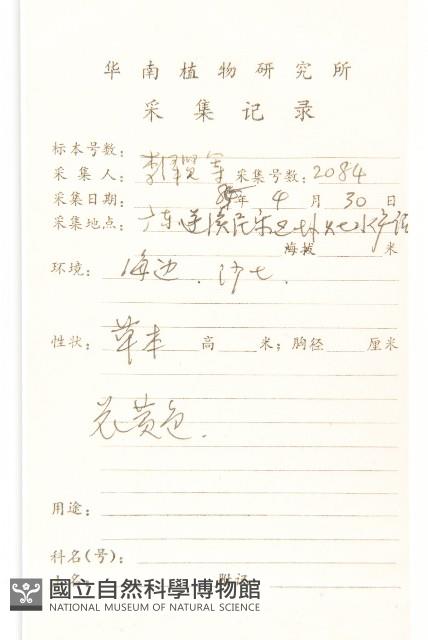 华南植物研究所
采集记录
标本号数：
采集人： 李泽贤等 采集号数：2084
采集日期： 年 4 月 30 日
采集地点： 广东
海拔 米
环境： 海边．沙土．
性状： 草本 高 米；胸径 厘米
花黄色．
用途：
科名(号)：
國立自然科學博物館
NATIONAL MUSEUM OF NATURAL SCIENCE